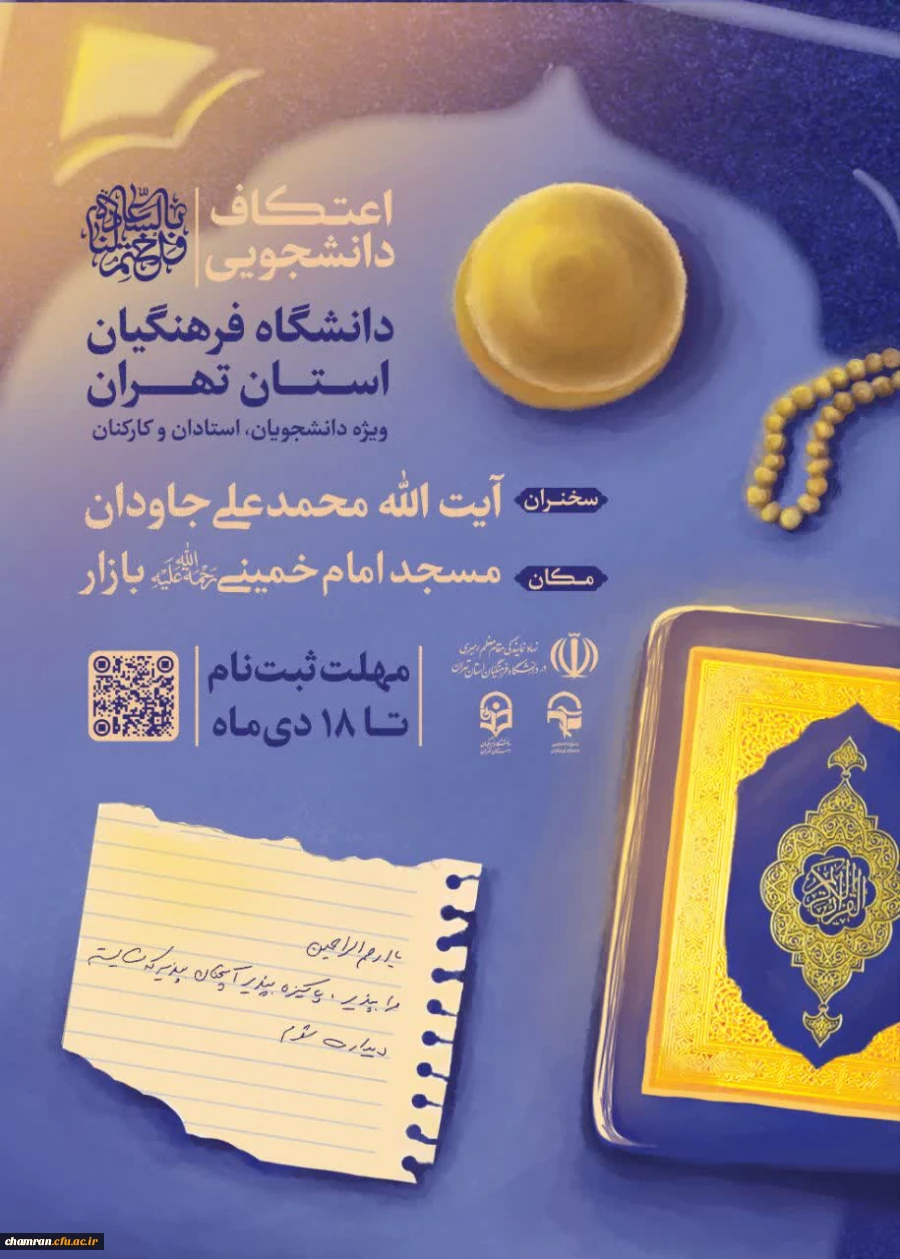 اعتکاف
دانشجویی
بالسعادة
واختم لنا
دانشگاه فرهنگیان
استان تهران
ویژه دانشجویان، استادان و کارکنان
سخنران
آیت الله محمدعلی جاودان
مکان
مسجد امام خمینی رحمة الله علیه بازار
مهلت ثبت‌نام
تا ۱۸ دی‌ماه
نهاد نمایندگی مقام معظم رهبری
در دانشگاه فرهنگیان استان تهران
یا ارحم الراحمین
مرا بپذیر، پاکیزه بپذیر آنچنان بپذیر که شایسته
دیدارت شوم
القرآن الکریم
chamran.cfu.ac.ir